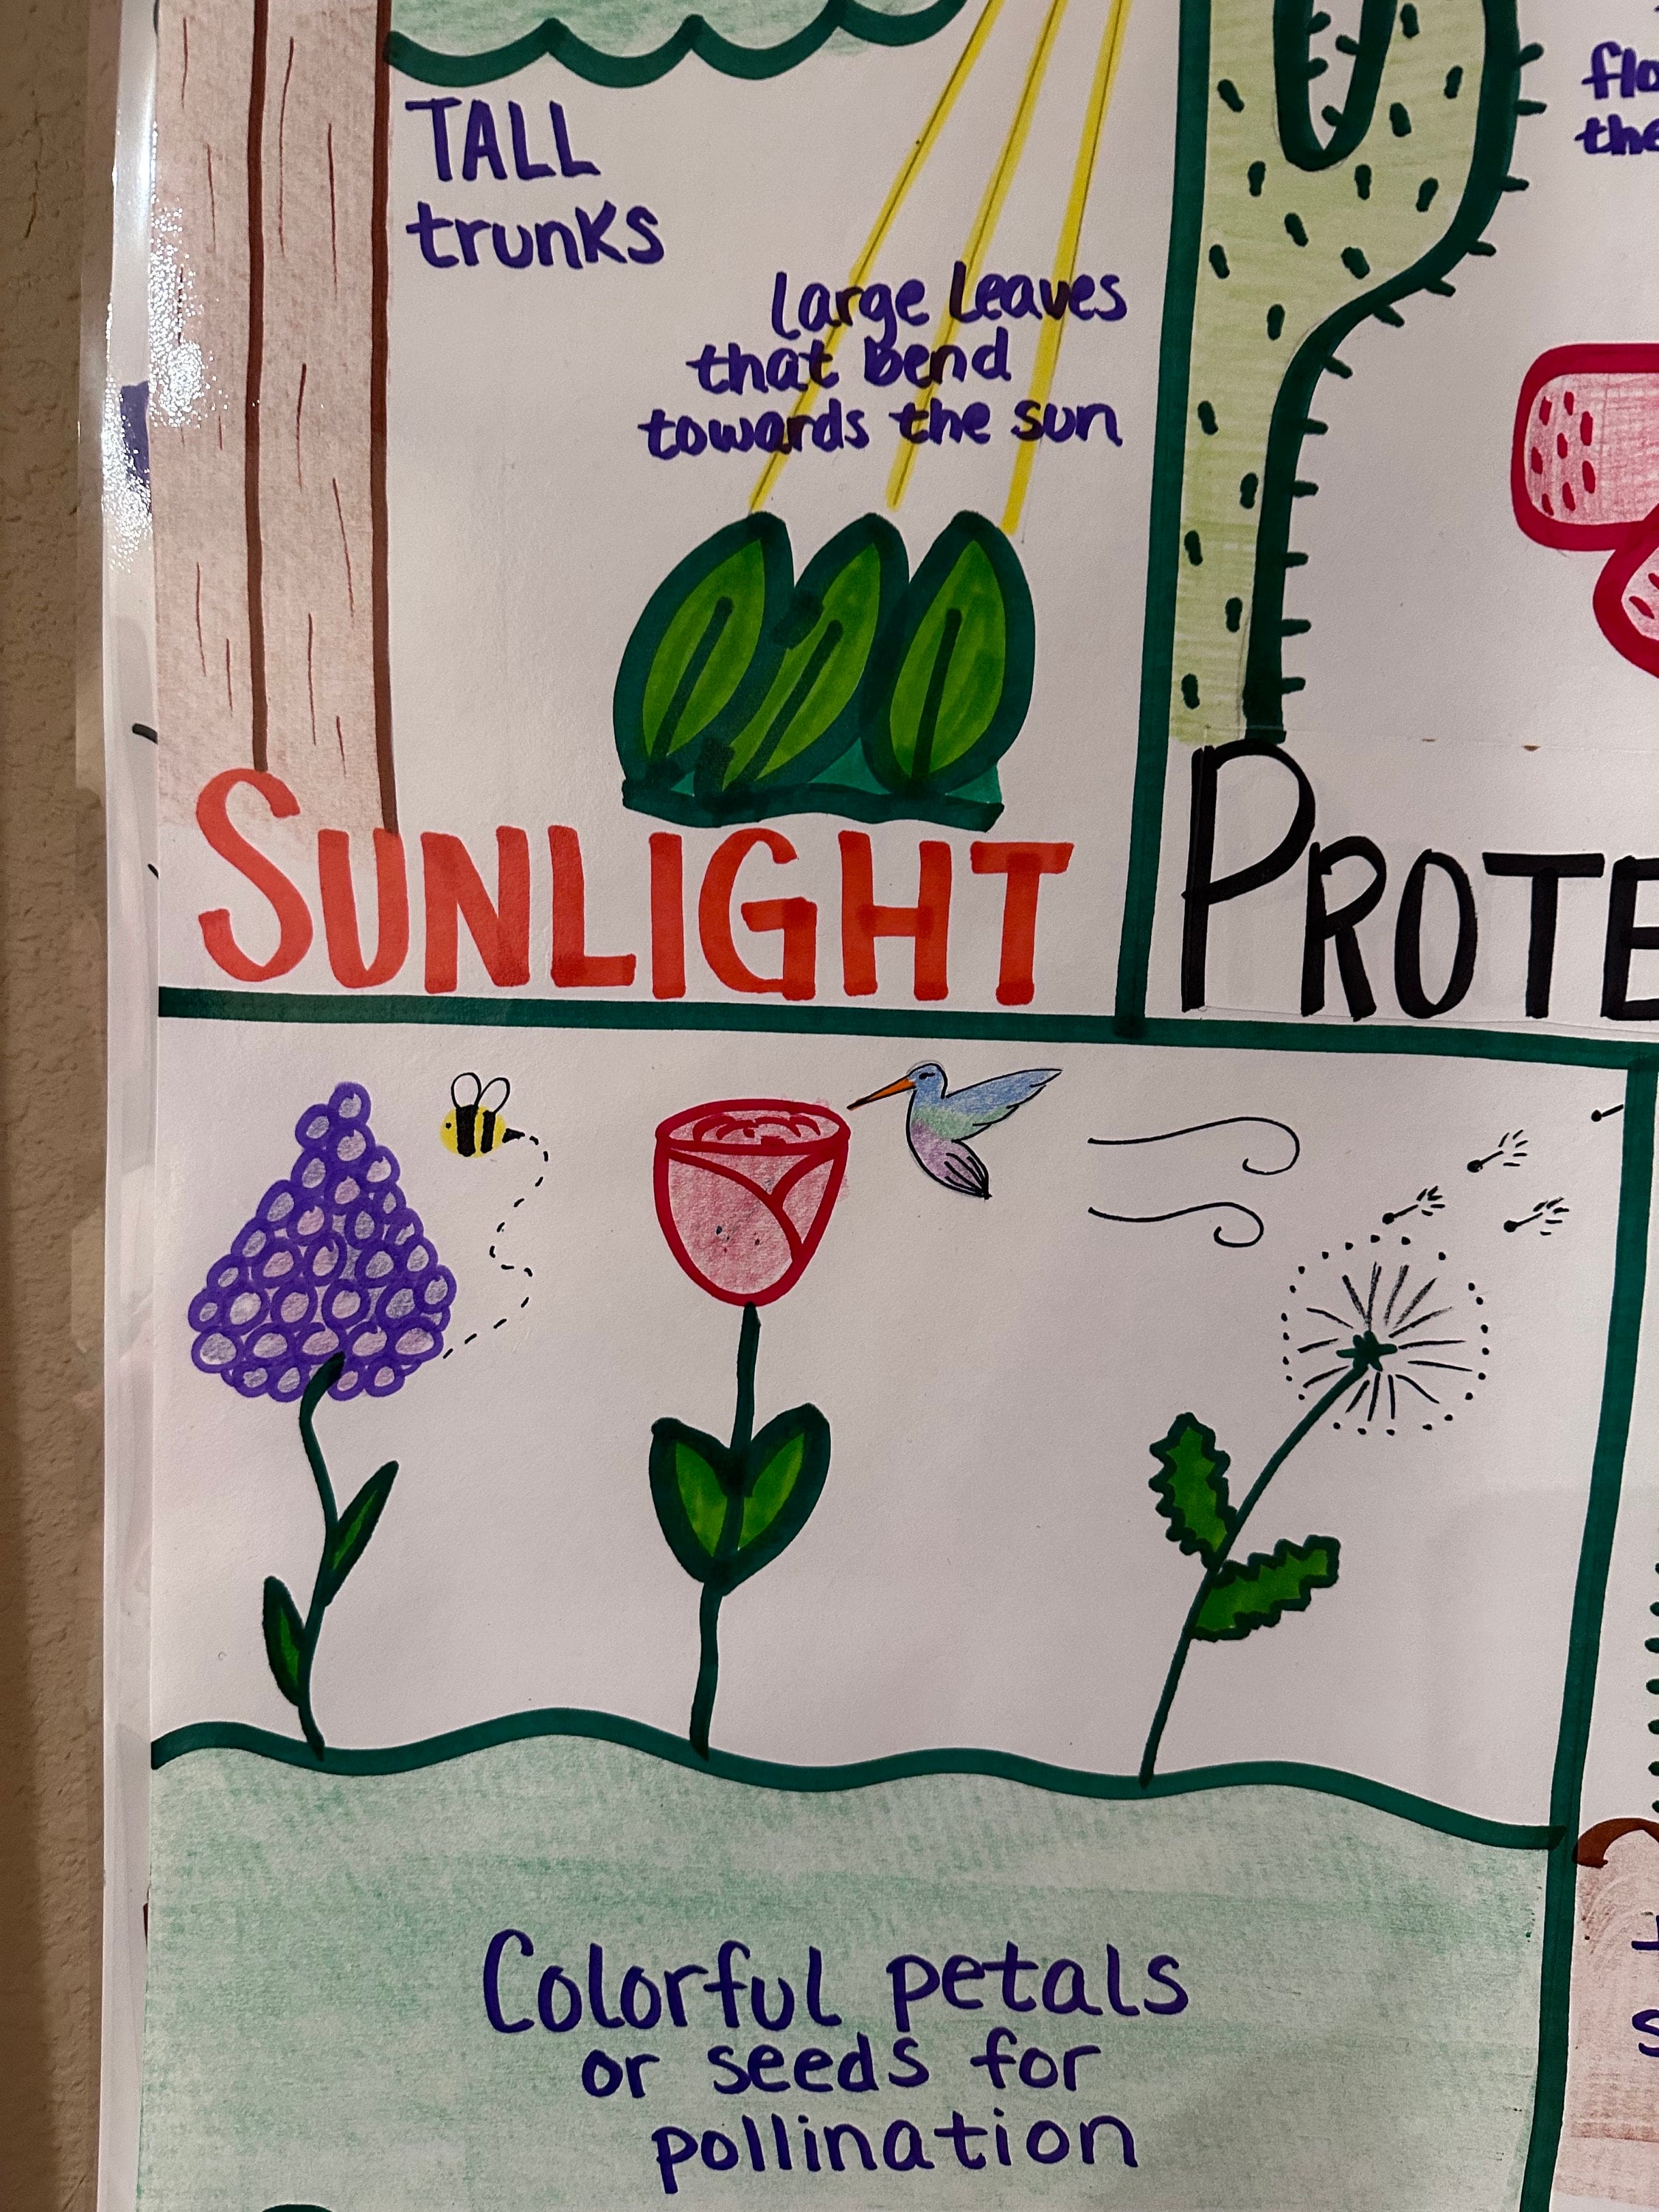 TALL
trunks
large leaves
that bend
towards the sun
SUNLIGHT
Colorful petals
or seeds for
pollination